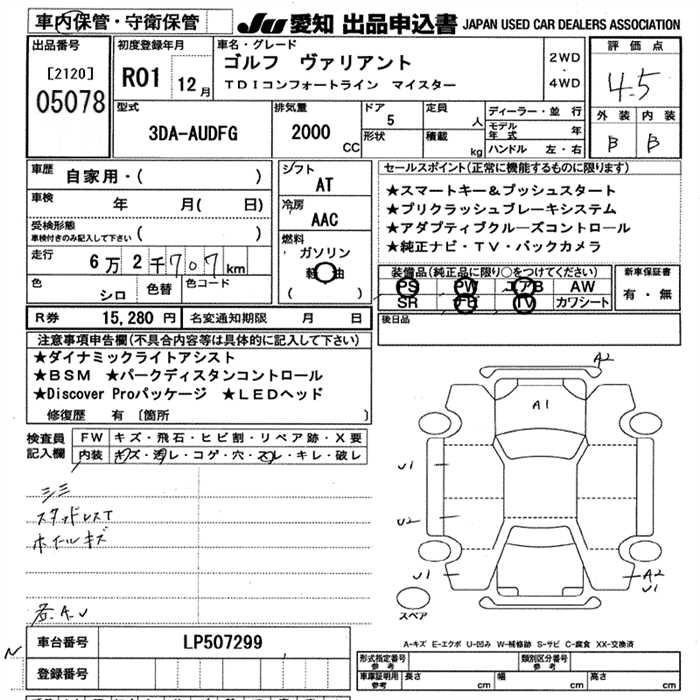 車内保管・守衛保管
JU 愛知 出品申込書 JAPAN USED CAR DEALERS ASSOCIATION
出品番号
[2120]
05078
初度登録年月
R01 12月
車名・グレード
ゴルフ ヴァリアント
TDIコンフォートライン マイスター
2WD
・
4WD
評価点
4.5
外装 内装
B B
型式
3DA-AUDFG
排気量
2000
CC
ドア
5
形状
定員
人
積載
kg
ディーラー・並行
モデル年式 年
ハンドル 左・右
車歴
自家用・( )
車検
年 月( 日)
受検形態
車検付きのみ記入して下さい ( )
走行
6万2千707km
色
シロ
色替
色コード
シフト
AT
冷房
AAC
燃料
ガソリン
軽油
( )
セールスポイント(正常に機能するものに限ります)
★スマートキー&プッシュスタート
★プリクラッシュブレーキシステム
★アダプティブクルーズコントロール
★純正ナビ・TV・バックカメラ
装備品(純正品に限り○をつけてください)
PS PW エアB AW
SR TV カワシート
新車保証書
有・無
R券 15,280円 名変通知期限 月 日
後日品
注意事項申告欄(不具合内容等は具体的に記入して下さい)
★ダイナミックライトアシスト
★BSM ★パークディスタンコントロール
★Discover Proパッケージ ★LEDヘッド
修復歴 有 〔箇所 〕
検査員
記入欄
FW キズ・飛石・ヒビ割・リペア跡・X要
内装 キズ・汚レ・コゲ・穴・スレ・キレ・破レ
シミ
スタッドレスT
ホイールキズ
A2
A1
U1
U2
U1
A2
U1
スペア
A-キズ E-エクボ U-凹み W-補修跡 S-サビ C-腐食 XX-交換済
N
車台番号
LP507299
登録番号
形式指定番号
参考
類別区分番号
参考
車庫証明用
参考
長さ cm
幅 cm
高さ cm